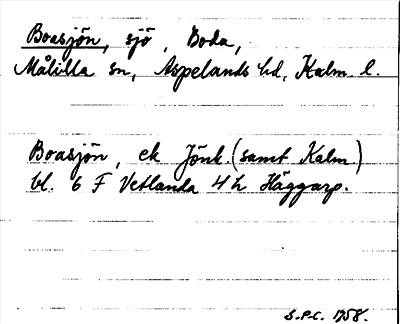 Boasjön, sjö, Boda,
Målilla sn, Aspelands hd, Kalm. l.
Boasjön, ek Jönk. (samt Kalm.)
bl. 6 F Vetlanda 4 h Häggarp.
S.P.C. 1958.